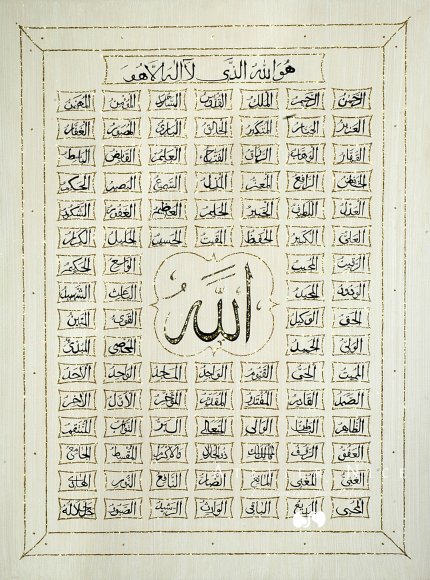 هو الله الذي لا اله الا هو
الرحمن الرحيم الملك القدوس السلام المؤمن المهيمن
العزيز الجبار المتكبر الخالق البارئ المصور الغفار
القهار الوهاب الرزاق الفتاح العليم القابض الباسط
الخافض الرافع المعز المذل السميع البصير الحكم
العدل اللطيف الخبير الحليم العظيم الغفور الشكور
العلي الكبير الحفيظ المقيت الحسيب الجليل الكريم
الرقيب المجيب الواسع الحكيم
الودود المجيد الباعث الشهيد
الله
الحق الوكيل القوي المتين
الولي الحميد المحصي المبدئ
المميت الحي القيوم الواجد الماجد الواحد الاحد
الصمد القادر المقتدر المقدم المؤخر الأول الآخر
الظاهر الباطن الوالي المتعالي البر التواب المنتقم
العفو الرؤف مالك الملك ذو الجلال والاكرام المقسط الجامع
الغني المغني المانع الضار النافع النور الهادي
المحيي البديع الباقي الوارث الرشيد الصبور جل جلاله